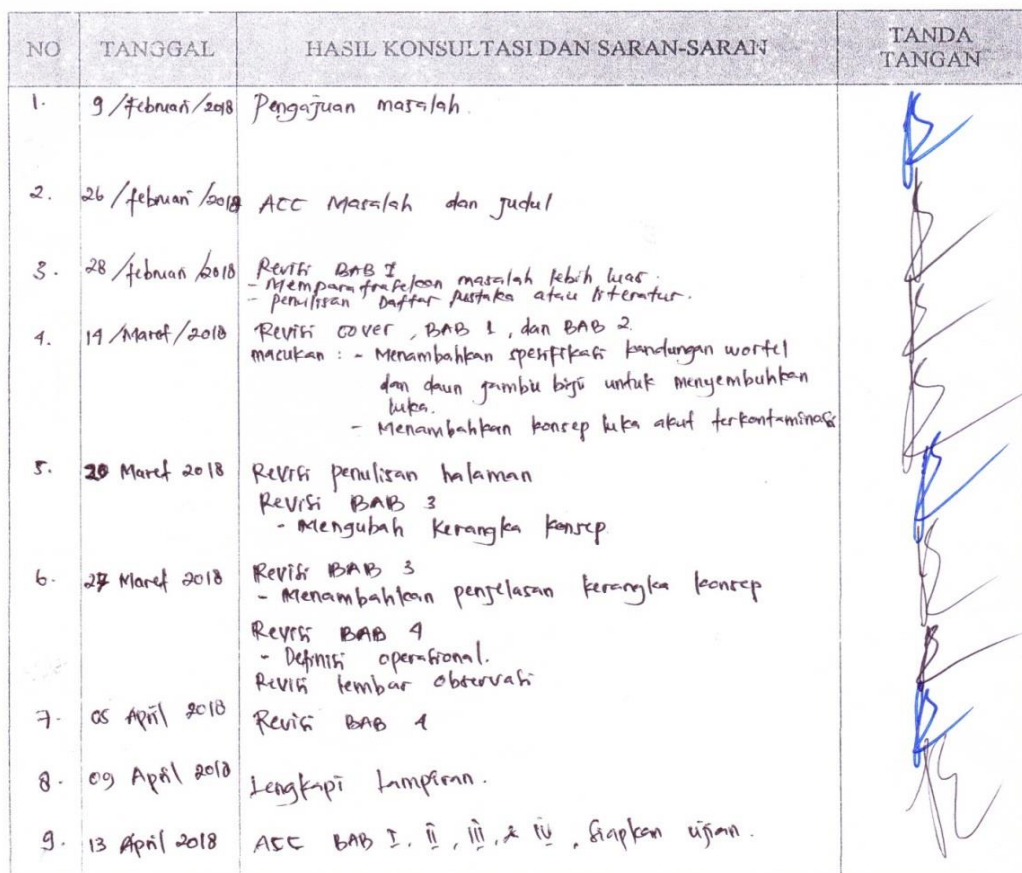 NO TANGGAL HASIL KONSULTASI DAN SARAN-SARAN TANDA TANGAN
1. 9/Februari/2018 Pengajuan masalah.
2. 26/februari/2018 ACC Masalah dan judul
3. 28/februari/2018 Revisi BAB I
- Memparafrasekan masalah lebih luas.
- penulisan Daftar pustaka atau literatur.
4. 14/Maret/2018 Revisi cover, BAB 1, dan BAB 2
masukan : - Menambahkan spesifikasi kandungan wortel
dan daun jambu biji untuk menyembuhkan
luka.
- Menambahkan konsep luka akut terkontaminasi
5. 20 Maret 2018 Revisi penulisan halaman
Revisi BAB 3
- Mengubah kerangka konsep
6. 27 Maret 2018 Revisi BAB 3
- Menambahkan penjelasan kerangka konsep
Revisi BAB 4
- Definisi operasional.
Revisi lembar observasi
7. 05 April 2018 Revisi BAB 4
8. 09 April 2018 Lengkapi Lampiran.
9. 13 April 2018 ACC BAB I, II, III, & IV, Siapkan ujian.